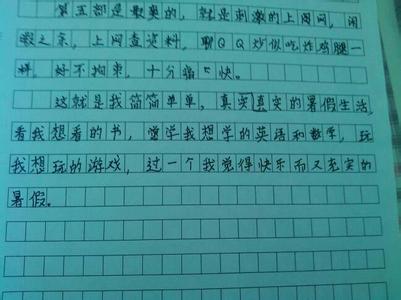 第五部是的，就是刺激的上网，闲
暇之余，上网查资料，聊QQ似吃炸鸡腿一
样，好不拘束，十分痛快。
这就是我简简单单，真实真实的暑假生活，
看我想看的书，学我想学的英语和数学，玩
我想玩的游戏，过一个我觉得快乐而又充实的
暑假。